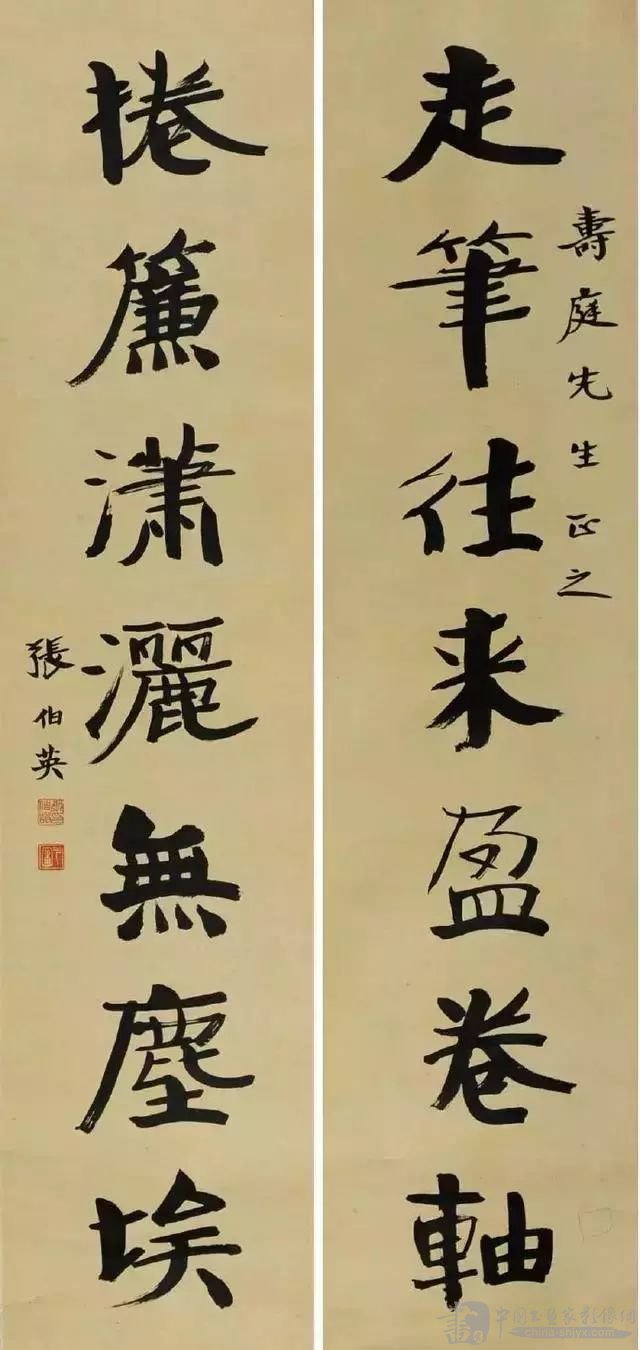 走筆往来盈卷軸
壽庭先生正之
捲簾潇灑無塵埃
張伯英
中国书画家影像网
china-shjyx.com